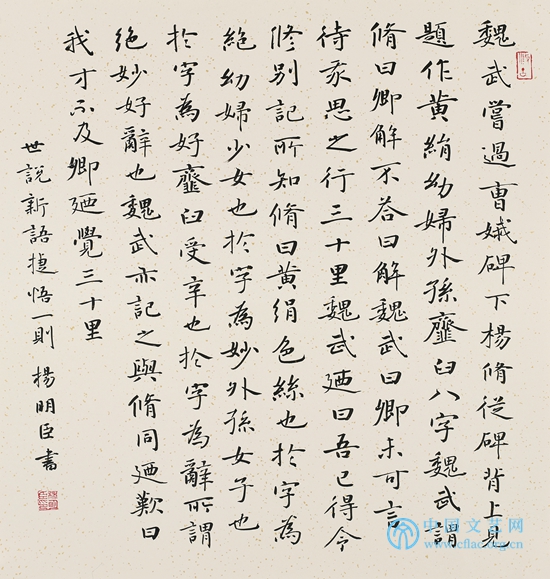 魏武嘗過曹娥碑下楊脩從碑背上見
題作黃絹幼婦外孫齏臼八字魏武謂
脩曰卿解不荅曰解魏武曰卿未可言
待我思之行三十里魏武廼曰吾已得令
脩別記所知脩曰黃絹色絲也於字為
絕幼婦少女也於字為妙外孫女子也
於字為好齏臼受辛也於字為辭所謂
絕妙好辭也魏武亦記之與脩同廼歎曰
我才不及卿廼覺三十里
世說新語捷悟一則 楊明臣書
中国文艺网
www.cflac.org.cn